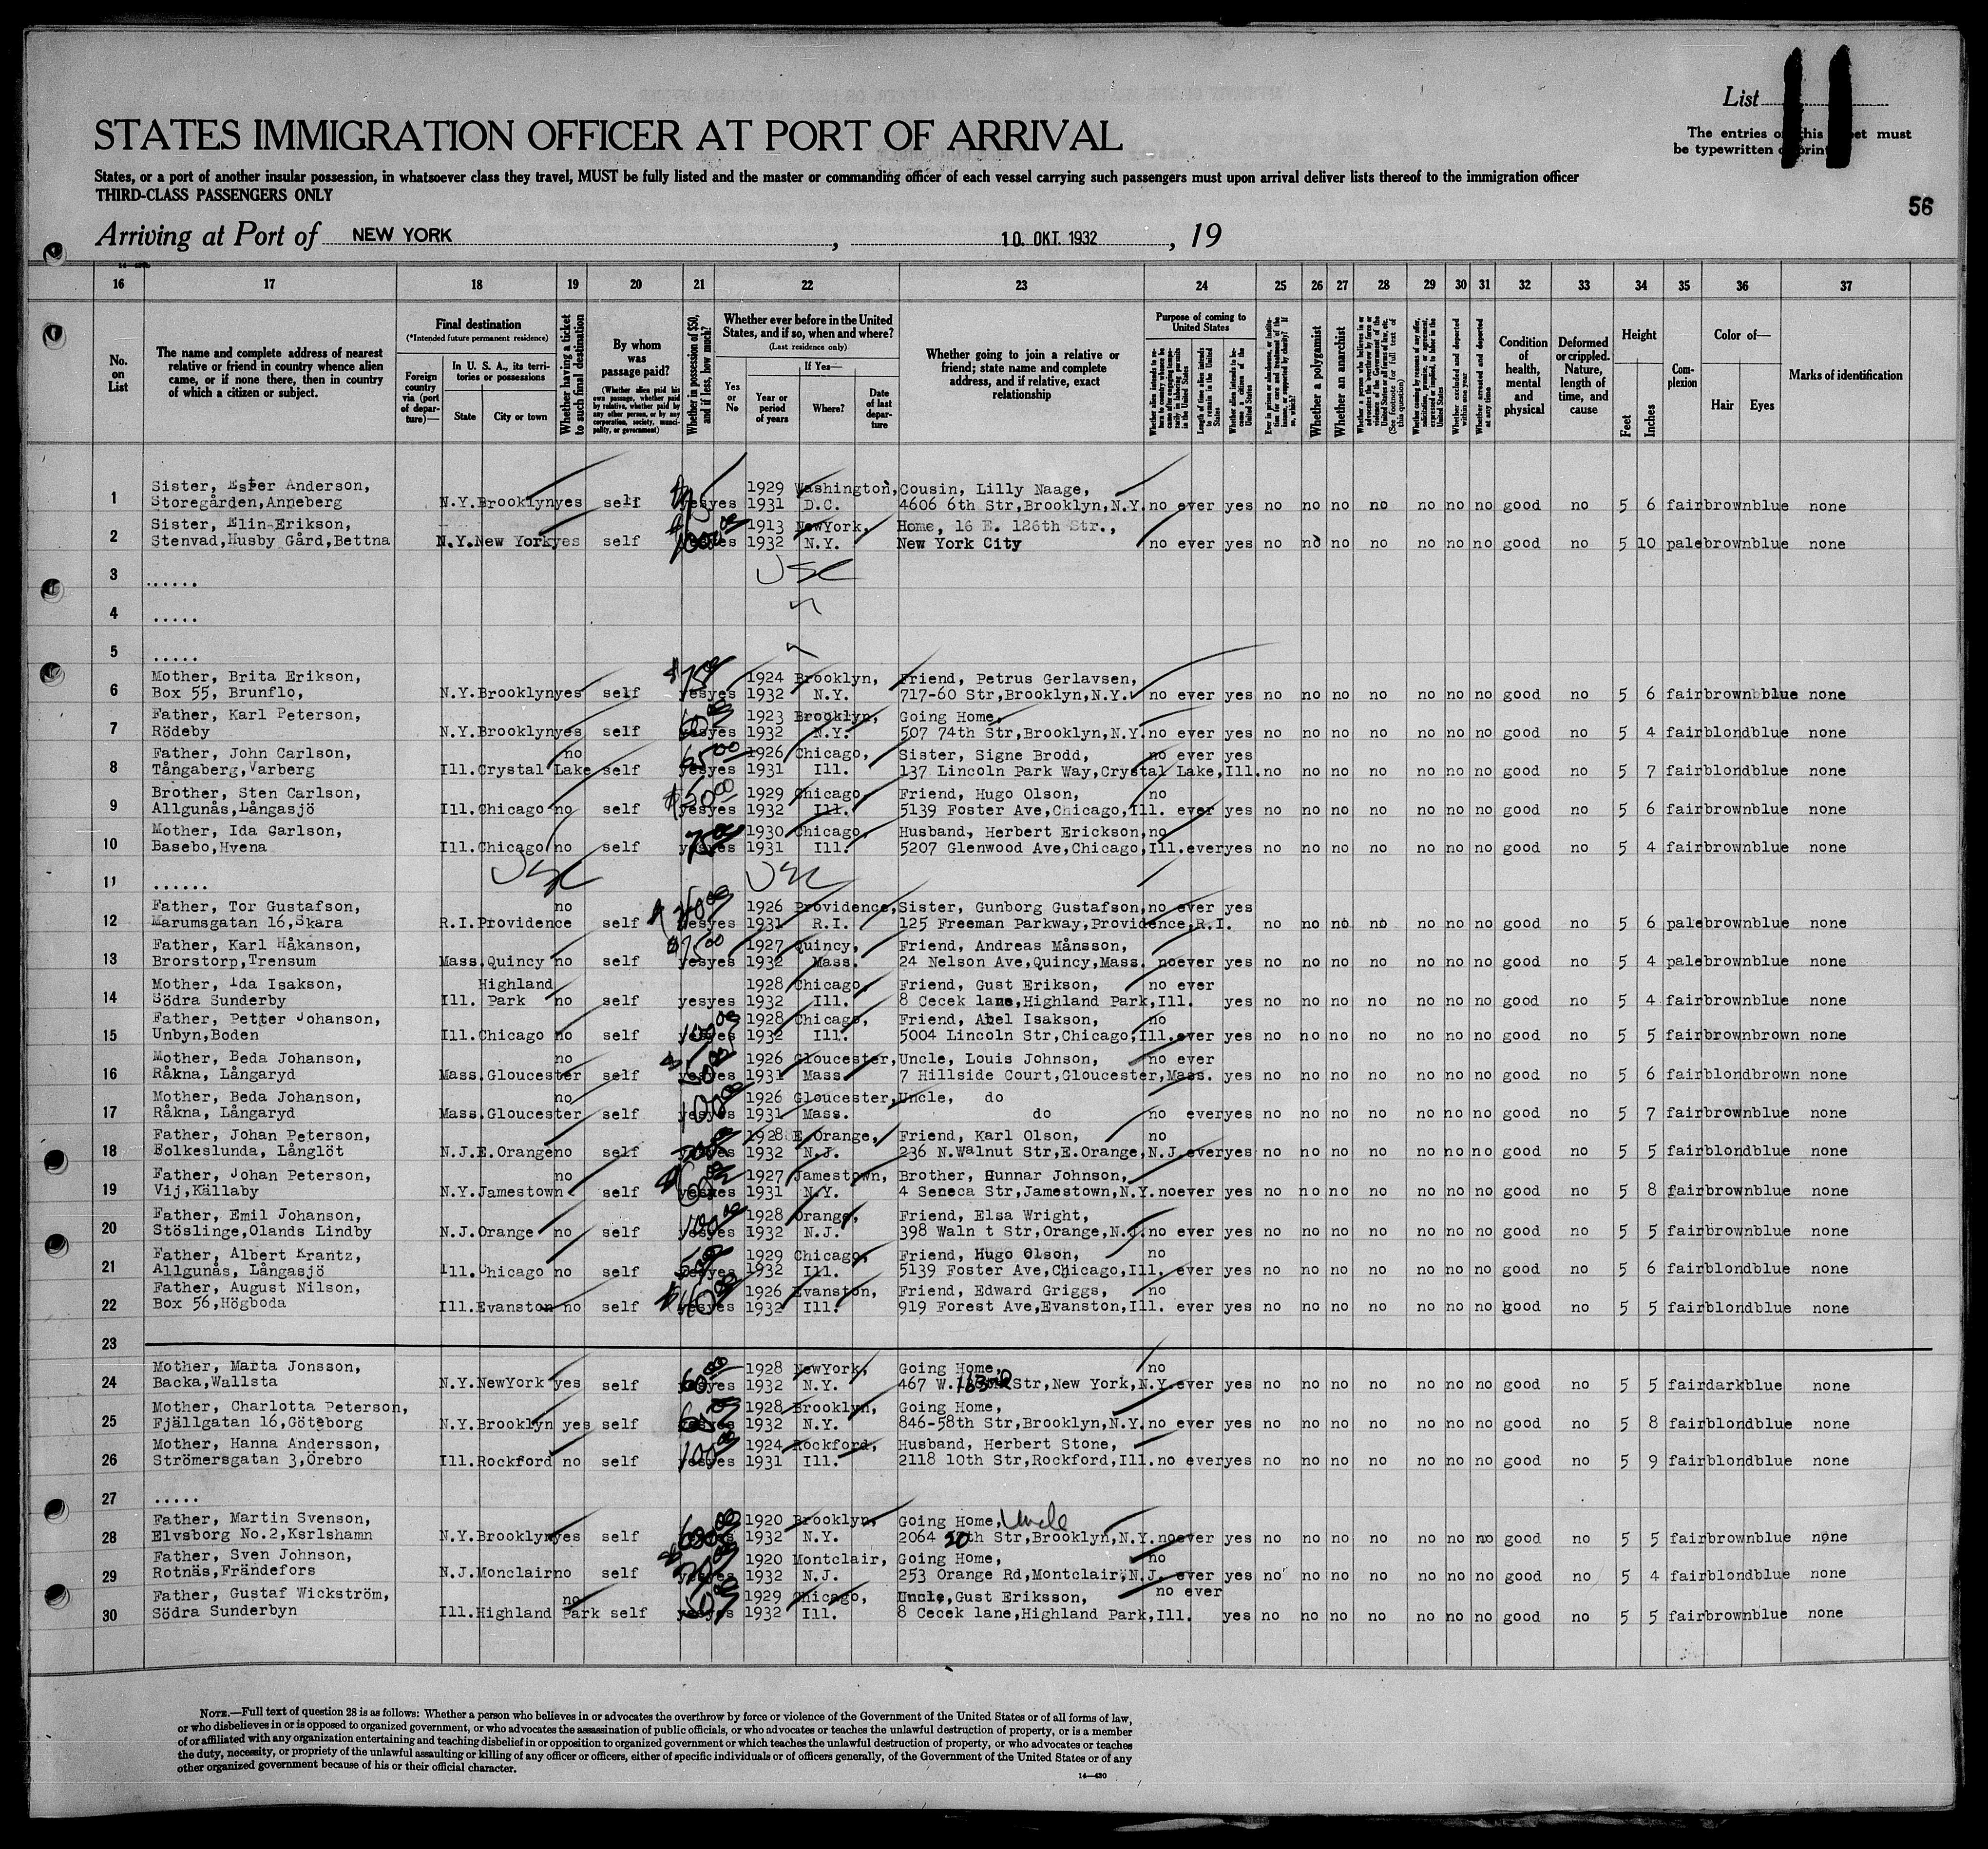 List 11
STATES IMMIGRATION OFFICER AT PORT OF ARRIVAL
The entries on this sheet must
be typewritten or printed
States, or a port of another insular possession, in whatsoever class they travel, MUST be fully listed and the master or commanding officer of each vessel carrying such passengers must upon arrival deliver lists thereof to the immigration officer
THIRD-CLASS PASSENGERS ONLY
56
Arriving at Port of NEW YORK, 10. OKT. 1932, 19
16 17 18 19 20 21 22 23 24 25 26 27 28 29 30 31 32 33 34 35 36 37
No. on List
The name and complete address of nearest relative or friend in country whence alien came, or if none there, then in country of which a citizen or subject.
Final destination
(*Intended future permanent residence)
Foreign country via (port of departure)—
In U. S. A., its territories or possessions
State
City or town
Whether having a ticket to such final destination
By whom was passage paid?
(Whether alien paid his own passage, whether paid by relative, whether paid by any other person, or by any corporation, society, municipality, or government)
Whether in possession of $50, and if less, how much?
Whether ever before in the United States, and if so, when and where?
(Last residence only)
Yes or No
If Yes—
Year or period of years
Where?
Date of last departure
Whether going to join a relative or friend; state name and complete address, and if relative, exact relationship
Purpose of coming to United States
Length of time alien intends to remain in the United States
Whether alien intends to become a citizen of the United States
Whether a polygamist
Whether an anarchist
Whether excluded and deported within one year
Whether arrested and deported at any time
Condition of health, mental and physical
Deformed or crippled. Nature, length of time, and cause
Height
Feet
Inches
Complexion
Color of—
Hair
Eyes
Marks of identification
Sister, Ester Anderson, 1929 Washington, Cousin, Lilly Naage,
1 Storegården,Anneberg N.Y.Brooklyn yes self yes yes 1931 D.C. 4606 6th Str,Brooklyn,N.Y. no ever yes no no no no no no no good no 5 6 fair brown blue none
Sister, Elin Erikson, 1913 NewYork, Home, 16 E. 126th Str.,
2 Stenvad,Husby Gård,Bettna N.Y.New York yes self yes yes 1932 N.Y. New York City no ever yes no no no no no no no good no 5 10 pale brown blue none
3 ...... USC
4 ..... "
5 ..... "
Mother, Brita Erikson, $75 1924 Brooklyn, Friend, Petrus Gerlavsen,
6 Box 55, Brunflo, N.Y.Brooklyn yes self yes yes 1932 N.Y. 717-60 Str,Brooklyn,N.Y. no ever yes no no no no no no no good no 5 6 fair brown blue none
Father, Karl Peterson, 1923 Brooklyn, Going Home,
7 Rödeby N.Y.Brooklyn yes self yes yes 1932 N.Y. 507 74th Str,Brooklyn,N.Y. no ever yes no no no no no no no good no 5 4 fair blond blue none
Father, John Carlson, no 65 00 1926 Chicago, Sister, Signe Brodd, no ever yes
8 Tångaberg,Varberg Ill.Crystal Lake self yes yes 1931 Ill. 137 Lincoln Park Way,Crystal Lake,Ill. no no no no no no no good no 5 7 fair blond blue none
Brother, Sten Carlson, 1929 Chicago, Friend, Hugo Olson, no
9 Allgunås,Långasjö Ill.Chicago no self yes yes 1932 Ill. 5139 Foster Ave,Chicago,Ill. ever yes no no no no no no no good no 5 6 fair brown blue none
Mother, Ida Carlson, 1930 Chicago, Husband, Herbert Erickson, no
10 Basebo,Hvena Ill.Chicago no self 75 yes 1931 Ill. 5207 Glenwood Ave,Chicago,Ill. ever yes no no no no no no no good no 5 4 fair brown blue none
11 ...... USC USC
Father, Tor Gustafson, no 1926 Providence, Sister, Gunborg Gustafson, no ever yes
12 Marumsgatan 16,Skara R.I.Providence self yes yes 1931 R.I. 125 Freeman Parkway,Providence,R.I. no no no no no no no good no 5 6 pale brown blue none
Father, Karl Håkanson, $75 00 1927 Quincy, Friend, Andreas Månsson,
13 Brorstorp,Trensum Mass.Quincy no self yes yes 1932 Mass. 24 Nelson Ave,Quincy,Mass. no ever yes no no no no no no no good no 5 4 pale brown blue none
Mother, Ida Isakson, Highland 1928 Chicago, Friend, Gust Erikson, no ever
14 Södra Sunderby Ill. Park no self yes yes 1932 Ill. 8 Cecek lane,Highland Park,Ill. yes no no no no no no no good no 5 4 fair brown blue none
Father, Petter Johanson, 1928 Chicago, Friend, Abel Isakson, no
15 Unbyn,Boden Ill.Chicago no self 100 00 yes 1932 Ill. 5004 Lincoln Str,Chicago,Ill. ever yes no no no no no no no good no 5 5 fair brown brown none
Mother, Beda Johanson, no 1926 Gloucester, Uncle, Louis Johnson, no ever
16 Råkna, Långaryd Mass.Gloucester self yes yes 1931 Mass. 7 Hillside Court,Gloucester,Mass. yes no no no no no no no good no 5 6 fair blond brown none
Mother, Beda Johanson, no 1926 Gloucester, Uncle, do
17 Råkna, Långaryd Mass.Gloucester self yes yes 1931 Mass. do no ever yes no no no no no no no good no 5 7 fair brown blue none
Father, Johan Peterson, 1928 E.Orange, Friend, Karl Olson, no
18 Folkeslunda, Långlöt N.J.E.Orange no self yes 1932 N.J. 236 N.Walnut Str,E.Orange,N.J. ever yes no no no no no no no good no 5 5 fair blond blue none
Father, Johan Peterson, no 1927 Jamestown, Brother, Gunnar Johnson,
19 Vij,Källaby N.Y.Jamestown self yes yes 1931 N.Y. 4 Seneca Str,Jamestown,N.Y. no ever yes no no no no no no no good no 5 8 fair brown blue none
Father, Emil Johanson, 1928 Orange, Friend, Elsa Wright,
20 Stöslinge,Olands Lindby N.J.Orange no self 100 00 yes 1932 N.J. 398 Waln t Str,Orange,N.J. no ever yes no no no no no no no good no 5 5 fair brown blue none
Father, Albert Krantz, 1929 Chicago, Friend, Hugo Olson, no
21 Allgunås, Långasjö Ill.Chicago no self yes yes 1932 Ill. 5139 Foster Ave,Chicago,Ill. ever yes no no no no no no no good no 5 6 fair blond blue none
Father, August Nilson, 1926 Evanston, Friend, Edward Griggs, no
22 Box 56,Högboda Ill.Evanston no self yes yes 1932 Ill. 919 Forest Ave,Evanston,Ill. ever yes no no no no no no no good no 5 5 fair blond blue none
23
Mother, Marta Jonsson, 1928 NewYork, Going Home, no
24 Backa,Wallsta N.Y.NewYork yes self 60 00 yes 1932 N.Y. 467 W. 163rd Str,New York,N.Y. ever yes no no no no no no no good no 5 5 fair dark blue none
Mother, Charlotta Peterson, 1928 Brooklyn, Going Home,
25 Fjällgatan 16,Göteborg N.Y.Brooklyn yes self yes 1932 N.Y. 846-58th Str,Brooklyn,N.Y. no ever yes no no no no no no no good no 5 8 fair blond blue none
Mother, Hanna Andersson, 1924 Rockford, Husband, Herbert Stone,
26 Strömersgatan 3,Örebro Ill.Rockford no self 100 00 yes 1931 Ill. 2118 10th Str,Rockford,Ill. no ever yes no no no no no no no good no 5 9 fair blond blue none
27 .....
Father, Martin Svenson, 1920 Brooklyn, Going Home, Uncle
28 Elvsborg No.2,Karlshamn N.Y.Brooklyn yes self yes 1932 N.Y. 2064 20th Str,Brooklyn,N.Y. no ever yes no no no no no no no good no 5 5 fair brown blue none
Father, Sven Johnson, 1920 Montclair, Going Home, no
29 Rotnäs,Frändefors N.J.Monclair no self yes yes 1932 N.J. 253 Orange Rd,Montclair,N.J. ever yes no no no no no no no good no 5 4 fair blond blue none
Father, Gustaf Wickström, no 1929 Chicago, Uncle,Gust Eriksson, no ever
30 Södra Sunderbyn Ill.Highland Park self yes 1932 Ill. 8 Cecek lane,Highland Park,Ill. yes no no no no no no no good no 5 5 fair brown blue none
NOTE.—Full text of question 28 is as follows: Whether a person who believes in or advocates the overthrow by force or violence of the Government of the United States or of all forms of law,
or who disbelieves in or is opposed to organized government, or who advocates the assassination of public officials, or who advocates or teaches the unlawful destruction of property, or is a member
of or affiliated with any organization entertaining and teaching disbelief in or opposition to organized government or which teaches the unlawful destruction of property, or who advocates or teaches
the duty, necessity, or propriety of the unlawful assaulting or killing of any officer or officers, either of specific individuals or of officers generally, of the Government of the United States or of any
other organized government because of his or their official character.
14—430